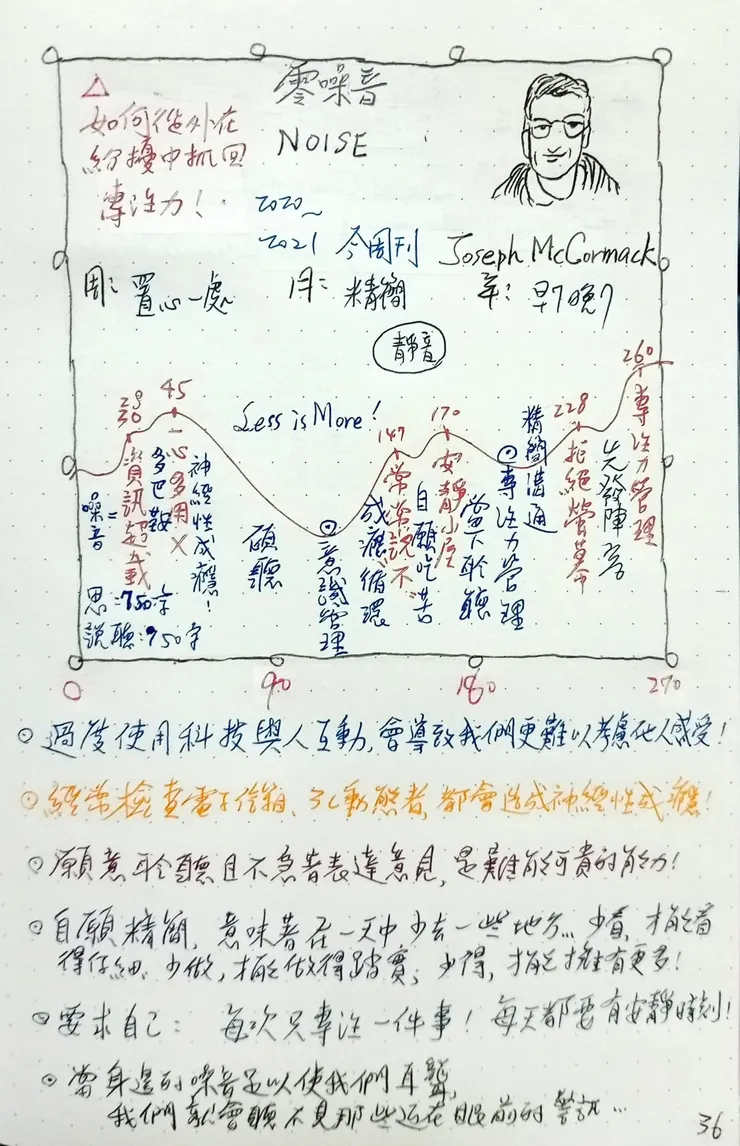 零噪音
NOISE
△
如何從外在
紛擾中抓回
專注力！
2020~
2021 今周刊
Joseph McCormack
周：置心一處
月：精簡
年：早7晚7
靜音
Less is More！
噪音=
思=750字
說聽：150字
30
資訊超載
多巴胺
45
一心多用×
神經性成癮！
傾聽
⊙意識管理
成癮循環
147
常常說不
自願吃苦
170
安靜小屋
當下聆聽
⊙專注力管理
精簡溝通
228
拒絕螢幕
260
專注力管理
0
90
180
270
⊙過度使用科技與人互動，會導致我們更難以考慮他人感受！
⊙經常檢查電子信箱、動態者，都會造成神經性成癮！
⊙願意聆聽且不急著表達意見，是難能可貴的能力！
⊙自願精簡，意味著在一天中少去一些地方…少看，才能看
得仔細，少做，才能做得踏實；少得，才能擁有更多！
⊙要求自己：每次只專注一件事！每天都要有安靜時刻！
⊙當身邊的噪音足以使我們耳聾，
我們就會聽不見那些近在眼前的警訊…
36